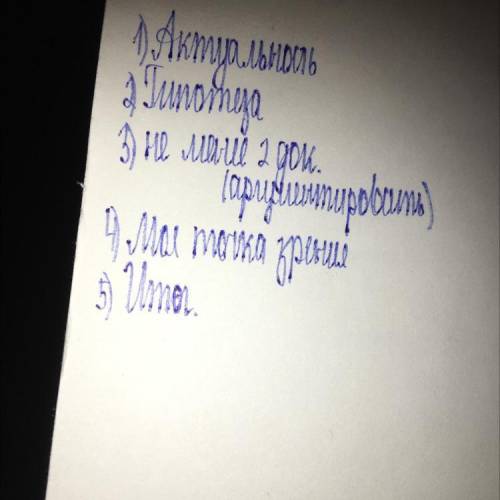 1) Актуальность
2) Гипотеза
3) не менее 2 док.
(аргументировать)
4) Моя точка зрения
5) Итог.